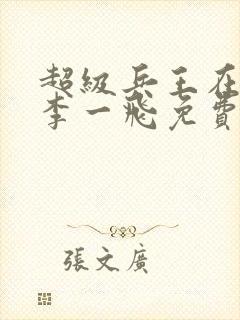 超級兵王在
李一飛免費
張文廣